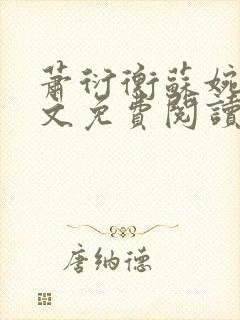 蕭衍衡蘇婉
文免費閱讀
唐納德